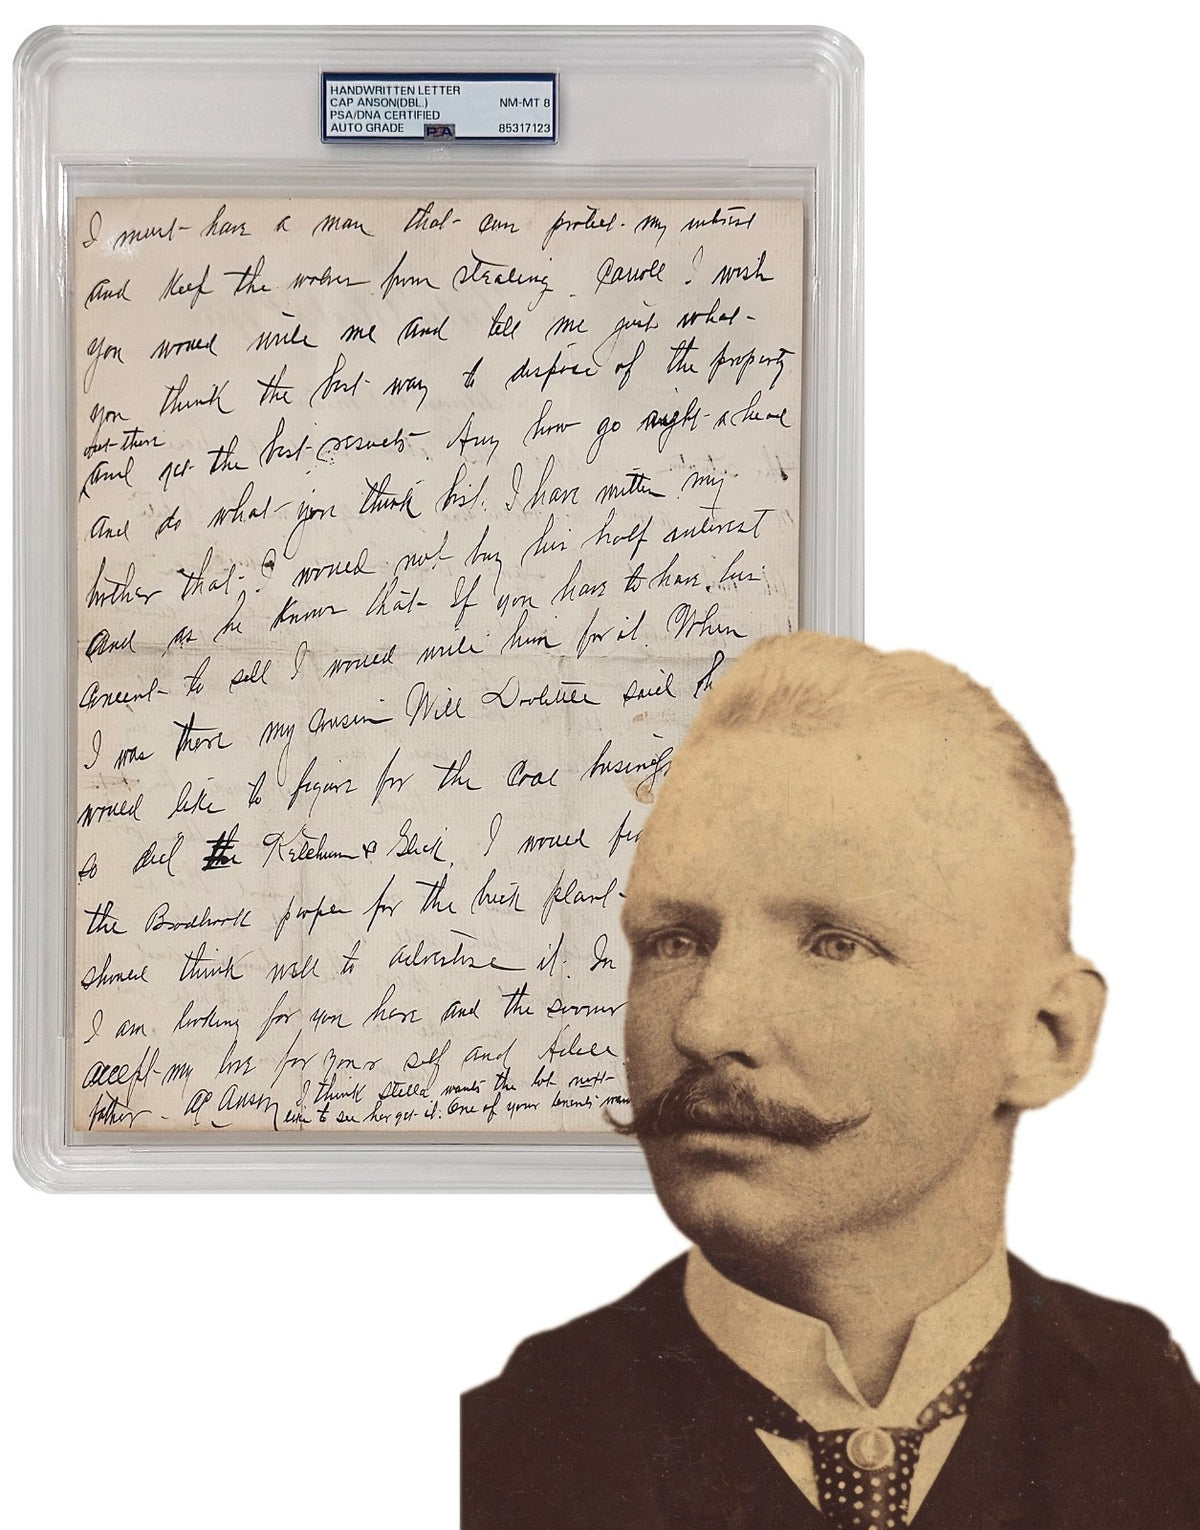 HANDWRITTEN LETTER
CAP ANSON(DBL.) NM-MT 8
PSA/DNA CERTIFIED
AUTO GRADE PSA 85317123
I must have a man that can protect my interest
and keep the wolves from stealing. Carroll I wish
you would write me and tell me just what
you think the best way to dispose of the property
out there
and get the best results. Any how go right ahead
and do what you think best. I have written my
brother that I would not buy his half interest
and as he knows that If you have to have his
to sell I would write him for it. When
I was there my cousin Will Doolittle said
would like to figure for the coal
so did the Ketchum & Glick. I would
the paper for the brick plant
should think well to advertise it. In
I am looking for you have and the sooner
accept my love for your self and Adele
father. AC Anson I think Stella wants the lot next
like to see her get it. One of your tenents